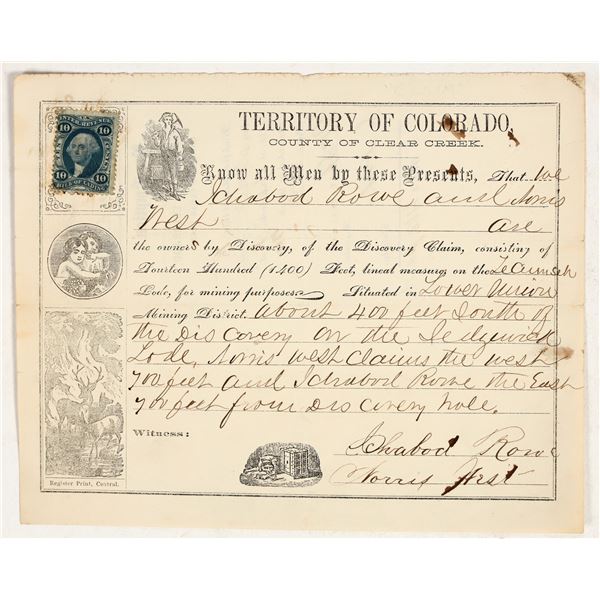 INTER. REVENUE
10 10
CENTS
10 10
BILL OF LADING
TERRITORY OF COLORADO,
COUNTY OF CLEAR CREEK.
Know all Men by these Presents, That we
Ichabod Rowe and Norris
West are
the owners by Discovery, of the Discovery Claim, consisting of
Fourteen Hundred (1400) Feet, lineal measure, on the
Lode, for mining purposes. Situated in Lower Union
Mining District. about 400 feet South of
the Discovery on the Sedgwick
Lode. Norris west claims the west
700 feet and Ichabod Rowe the East
700 feet from Discovery hole.
Witness:
Ichabod Rowe
Norris West
Register Print, Central.